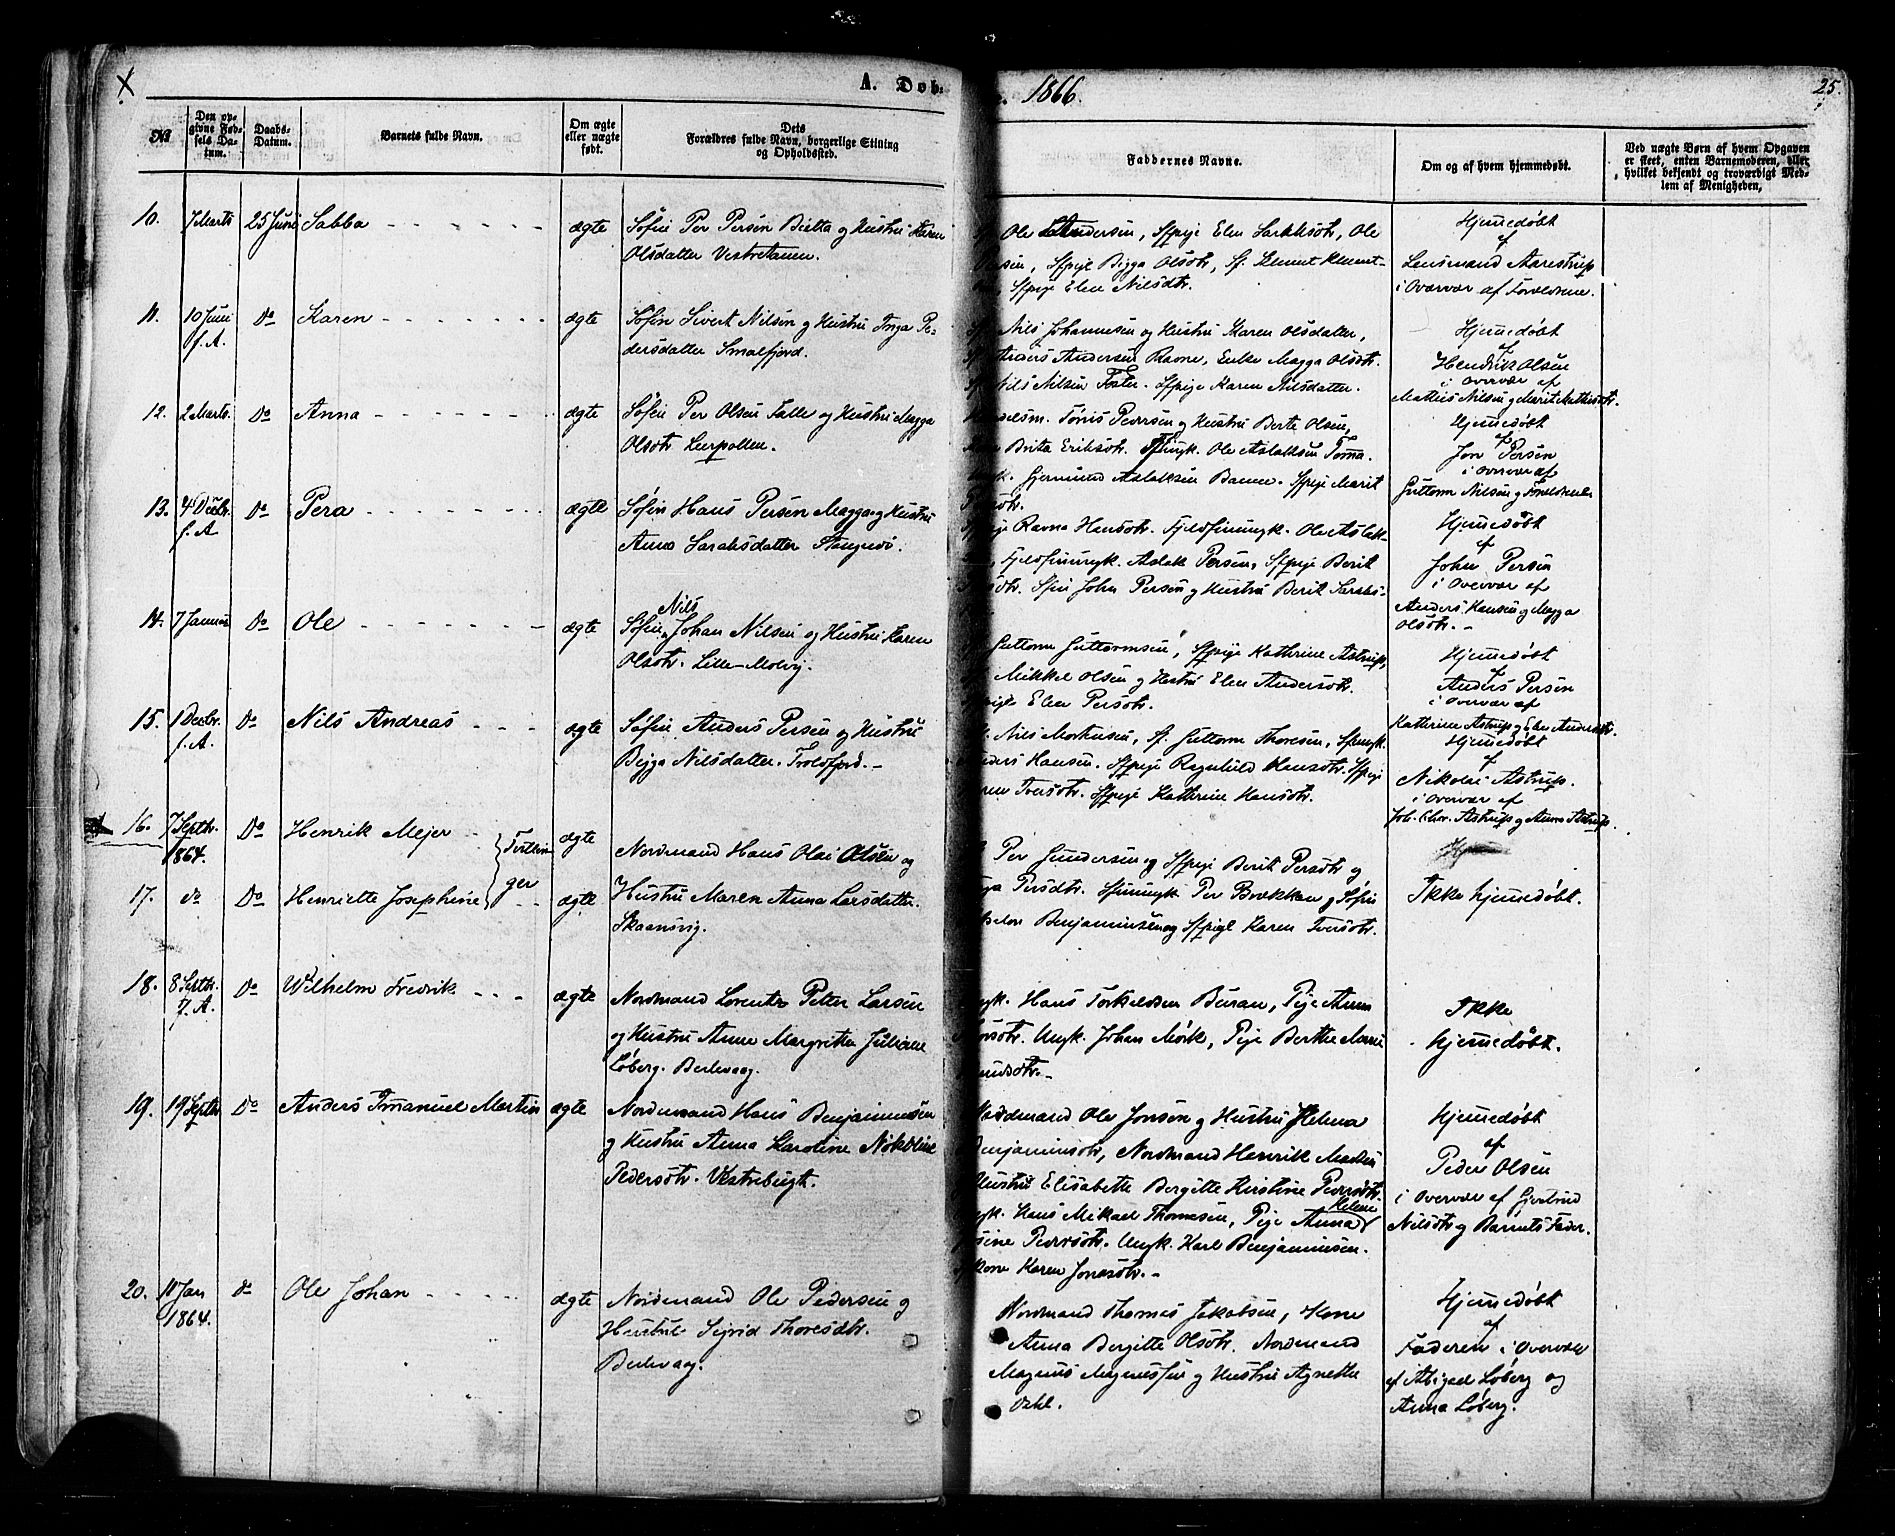 A. Døb.
1866.
25.
No
Den opgivne Fødsels Datum.
Daabs-Datum.
Barnets fulde Navn.
Om ægte eller uægte født.
Dets Forældres fulde Navn, borgerlige Stilling og Opholdssted.
Faddernes Navne.
Om og af hvem hjemmedøbt.
Ved uægte Børn af hvem Opgaven er skeet, enten Barnemoderen, eller hvilket bekjendt og troværdigt Medlem af Menigheden,
10. 7 Marts 25 Juni Sabba ægte Søfin Per Persen Bietta og Hustru Karen
Olsdatter Vestretanen.
Ole Andersen, Sfpige Elen Larsdtr, Ole
Sfpige Bigga Olsdtr, Sf. Klemet Klemet-
Sfpige Elen Nilsdtr.
Hjemedøbt
af
Lensmand Aarestrup
i Overvær af Forældrene.
11. 10 Juni f. A. Do Karen ægte Søfin Sivert Nilsen og Hustru Inga Pe-
dersdatter Smalfjord.
Nils Johannesen og Hustru Karen Olsdatter,
Anders Andersen Ravne, Enke Magga Olsdtr.
Nils Nilsen Foster. Sfpige Karen Nilsdatter.
Hjemedøbt
af
Hendrik Olsen
i Overvær af
Mathis Nilsen og Marit Mathisdtr.
12. 2 Marts. Do Anna ægte Søfin Per Olsen Falle og Hustru Magga
Olsdtr Leerpollen.
Tønis Pedersen og Hustru Berte Olsen,
Brita Eriksdtr. Ole Aslaksen Tomma.
Gjermund Aslaksen Banne. Sfpige Marit
Hjemedøbt
af
Jon Persen
i Overvær af
Guttorm Nilsen og Forældrene
13. 4 Decbr. f. A Do Pera ægte Søfin Hans Persen Magga og Hustru
Anne Sarahsdatter Stangnæs.
Ravna Hansdtr. Fjeldfinungk. Ole Aslak-
Fjeldfinungk. Aslak Persen, Sfpige Berit
Sfin John Persen og Hustru Berit Sarahs-
Hjemedøbt
af
John Persen
i Overvær af
Anders Hansen og Magga
Olsdtr.
14. 7 Januar Do Ole ægte Søfin Nils Johan Nilsen og Hustru Karen
Olsdtr. Lille-Molvig.
Guttorm Guttormsen, Sfpige Kathrine Astrup,
Mikkel Olsen og Hustru Elen Andersdtr.
Elen Persdtr.
Hjemedøbt
af
Anders Persen
i Overvær af
Kathrine Astrup og Elen Andersdtr.
15. 1 Decbr. f. A. Do Nils Andreas ægte Søfin Anders Persen og Hustru
Bigga Nilsdatter. Troldfjord.
Nils Mathisen, Sf. Guttorm Thoresen, Sfungk.
Anders Hansen. Sfpige Ragnhild Hansdtr. Sfpige
Iversdtr. Sfpige Kathrine Hansdtr.
Hjemedøbt
af
Nikolai Astrup.
i Overvær af
Joh. Chr. Astrup og Anna Astrup.
16. 7 Septbr. 1864. Do Henrik Mejer Tvillin- ægte
Nordmand Hans Olai Olsen og
17. do Do Henriette Josephine ger ægte Hustru Maren Anna Larsdatter.
Skaansvig.
Per Gundersen og Sfpige Berit Persdtr og
Persdtr. Sfinungk Per Brækkan og Søfin
Benjaminsen og Sfpige Karen Iversdtr.
Ikke hjemedøbt.
18. 8 Septbr. f. A. Do Wilhelm Fredrik ægte Nordmand Lorents Peter Larsen
og Hustru Anne Margrethe Juliane
Løberg. Berlevaag.
Hans Torkeldsen Buran, Pige Anna
Ungk. Johan Mørk, Pige Berthe Marie
Ikke
hjemedøbt.
19. 19 Septbr Do Anders Imanuel Martin ægte Nordmand Hans Benjaminsen
og Hustru Anna Karoline Nikoline
Pedersdtr. Vestrebugt.
Nordmand Ole Jonsen og Hustru Helena
Benjaminsdtr, Nordmand Henrik Madsen
Hustru Elisabeth Bergitte Kirstine Pedersdtr.
Hans Mikael Thomesen, Pige Anna Helene
Pedersdtr. Ungk. Karl Benjaminsen.
Kone Karen Jonasdtr.
Hjemedøbt
af
Peder Olsen
i Overvær af Gjertrud
Nilsdtr og Barnets Fader.
20. 10 Jan 1864. do Ole Johan ægte Nordmand Ole Pedersen og
Hustru Sigrid Thoresdtr.
Berlevaag.
Nordmand Thomas Jakobsen, Kone
Anna Bergitte Olsdtr. Nordmand
Magnus Magnussen og Hustru Agnethe
Dahl.
Hjemedøbt
af
Faderen i Overvær
af Abigael Løberg og
Anna Løberg.